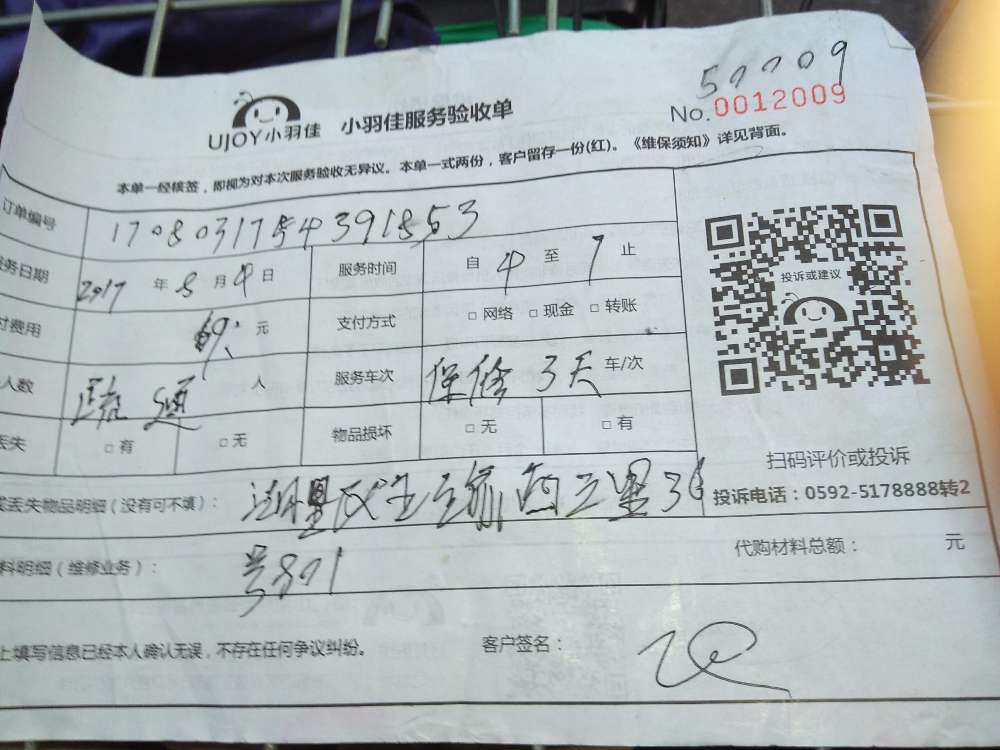 57709
UJOY小羽佳 小羽佳服务验收单 No.0012009
本单一经核签，即视为对本次服务验收无异议。本单一式两份，客户留存一份(红)。《维保须知》详见背面。
订单编号
务日期 2017 年 8 月 4 日 服务时间 自 4 至 7 止
付费用 69. 元 支付方式 □ 网络 □ 现金 □ 转账
人数 疏通 人 服务车次 保修3天 车/次
丢失 □ 有 □ 无 物品损坏 □ 无 □ 有
投诉或建议
扫码评价或投诉
投诉电话：0592-5178888转2
丢失物品明细（没有可不填）：
料明细（维修业务）： 代购材料总额： 元
上填写信息已经本人确认无误，不存在任何争议纠纷。 客户签名：